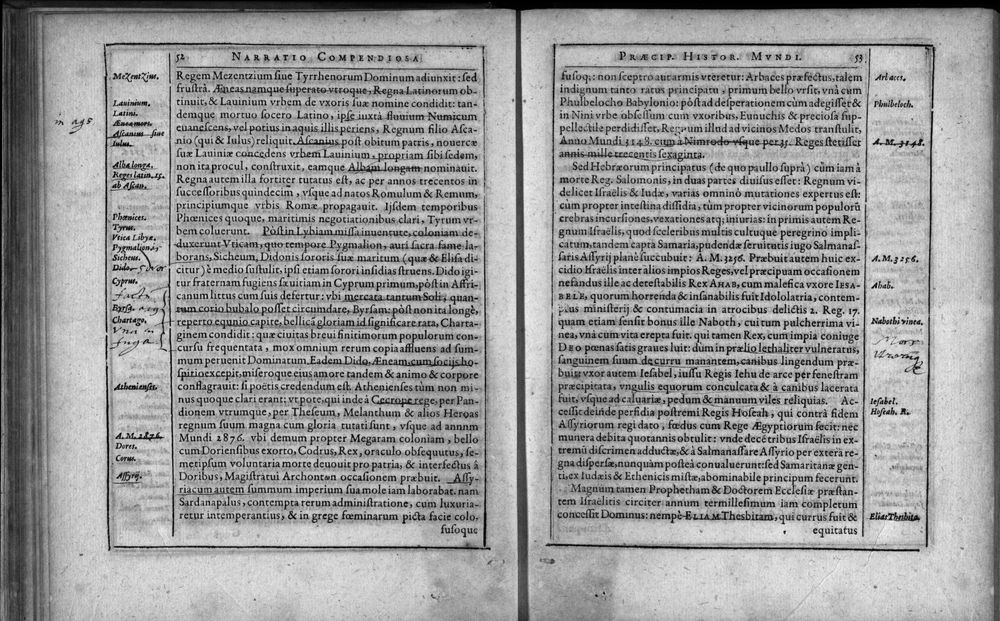 52 NARRATIO COMPENDIOSA
MeZentZius.
Lauinium.
Latini.
Æneæ mors.
Ascanius siue
Iulus.
Alba longa.
Reges latin. 15.
ab Ascan.
Phœnices.
Tyrus.
Vtica Libyæ.
Pygmalion.
Sicheus.
Dido.
Cyprus.
Byrsa.
Chartago.
Athenienses.
A. M. 2876.
Dores.
Corus.
Assyrij.
Regem Mezentzium siue Tyrrhenorum Dominum adiunxit: sed
frustrà. Æneas namque superato vtroque, Regna Latinorum ob-
tinuit, & Lauinium vrbem de vxoris suæ nomine condidit: tan-
demque mortuo socero Latino, ipse iuxtà fluuium Numicum
euanescens, vel potius in aquis illis periens, Regnum filio Asca-
nio (qui & Iulus) reliquit. Ascanius post obitum patris, nouercæ
suæ Lauiniæ concedens vrbem Lauinium, propriam sibi sedem,
non ita procul, construxit, eamque Albam longam nominauit.
Regna autem illa fortiter tutatus est, ac per annos trecentos in
successoribus quindecim, vsque ad natos Romulum & Remum,
principiumque vrbis Romæ propagauit. Ijsdem temporibus
Phœnices quoque, maritimis negotiationibus clari, Tyrum vr-
bem coluerunt. Pòst in Lybiam missa iuuentute, coloniam de-
duxerunt Vticam, quo tempore Pygmalion, auri sacra fame la-
borans, Sicheum, Didonis sororis suæ maritum (quæ & Elisa di-
citur) è medio sustulit, ipsi etiam sorori insidias struens. Dido igi-
tur fraternam fugiens sæuitiam in Cyprum primum, pòst in Affri-
canum littus cum suis defertur: vbi mercata tantum Soli, quan-
tum corio bubalo posset circumdare, Byrsam: pòst non ita longè,
reperto equino capite, bellicã gloriam id significare rata, Charta-
ginem condidit: quæ ciuitas breui finitimorum populorum con-
cursu frequentata, mox omnium rerum copia affluens ad sum-
mum peruenit Dominatum. Eadem Dido, Æneam, cum socijs ho-
spitio excepit, miseroque eius amore tandem & animo & corpore
conflagrauit: si poëtis credendum est. Athenienses tùm non mi-
nus quoque clari erant: vt pote, qui inde à Cecrope rege, per Pan-
dionem vtrumque, per Theseum, Melanthum & alios Heroas
regnum suum magna cum gloria tutati sunt, vsque ad annum
Mundi 2876. vbi demum propter Megaram coloniam, bello
cum Doriensibus exorto, Codrus, Rex, oraculo obsequutus, se-
metipsum voluntaria morte deuouit pro patria, & interfectus à
Doribus, Magistratui Archonton occasionem præbuit. Assy-
riacum autem summum imperium sua mole iam laborabat. nam
Sardanapalus, contempta rerum administratione, cum luxuria-
retur intemperantius, & in grege fœminarum picta facie colo,
fusoque
PRÆCIP. HISTOR. MVNDI. 53
fusoq;: non sceptro aut armis vteretur: Arbaces præfectus, talem
indignum tanto ratus principatu, primum bello vrsit, vnà cum
Phulbelocho Babylonio: pòst ad desperationem cùm adegisset &
in Nini vrbe obsessum cum vxoribus, Eunuchis & preciosa sup-
pellectile perdidisset. Regnum illud ad vicinos Medos transtulit,
Anno Mundi 3148. cum à Nimrodo vsque per 35. Reges stetisset
annis mille trecentis sexaginta.
Sed Hebræorum principatus (de quo paullo suprà) cùm iam à
morte Reg. Salomonis, in duas partes diuisus esset: Regnum vi-
delicet Israëlis & Iudæ, varias omninò mutationes expertus est:
cùm propter intestina dissidia, tùm propter vicinorum populorũ
crebras incursiones, vexationes atq; iniurias: in primis autem Re-
gnum Israëlis, quod sceleribus multis cultuque peregrino impli-
catum, tandem capta Samaria, pudendæ seruitutis iugo Salmanas-
saris Assyrij planè succubuit: A. M. 3256. Præbuit autem huic ex-
cidio Israëlis inter alios impios Reges, vel præcipuam occasionem
nefandus ille ac detestabilis Rex AHAB, cum malefica vxore IESA-
BELE, quorum horrenda & insanabilis fuit Idololatria, contem-
ptus ministerij & contumacia in atrocibus delictis 2. Reg. 17.
quam etiam sensit bonus ille Naboth, cui tum pulcherrima vi-
nea, vnà cum vita erepta fuit. qui tamen Rex, cum impia coniuge
DEO pœnas satis graues luit: dum in prælio lethaliter vulneratus,
sanguinem suum de curru manantem, canibus lingendum præ-
buit: vxor autem Iesabel, iussu Regis Iehu de arce per fenestram
præcipitata, vngulis equorum conculcata & à canibus lacerata
fuit, vsque ad caluariæ, pedum & manuum viles reliquias. Ac-
cessit deinde perfidia postremi Regis Hoseah, qui contrà fidem
Assyriorum regi dato, fœdus cum Rege Ægyptiorum fecit: nec
munera debita quotannis obtulit: vnde decẽ tribus Israëlis in ex-
tremũ discrimen adductæ, & à Salmanassare Assyrio per extera re-
gna dispersæ, nunquam posteà conualuerunt: sed Samaritanæ gen-
ti, ex Iudæis & Ethenicis mistæ, abominabile principum fecerunt.
Magnum tamen Prophetham & Doctorem Ecclesiæ præstan-
tem Israëlitis circiter annum termillesimum iam completum
concessit Dominus: nempè ELIAM Thesbitam, qui currus fuit &
equitatus
Arbaces.
Phulbeloch.
A. M. 3148.
A. M. 3256.
Ahab.
Nabothi vinea.
Iesabel.
Hoseah. R.
Elias Thesbita.